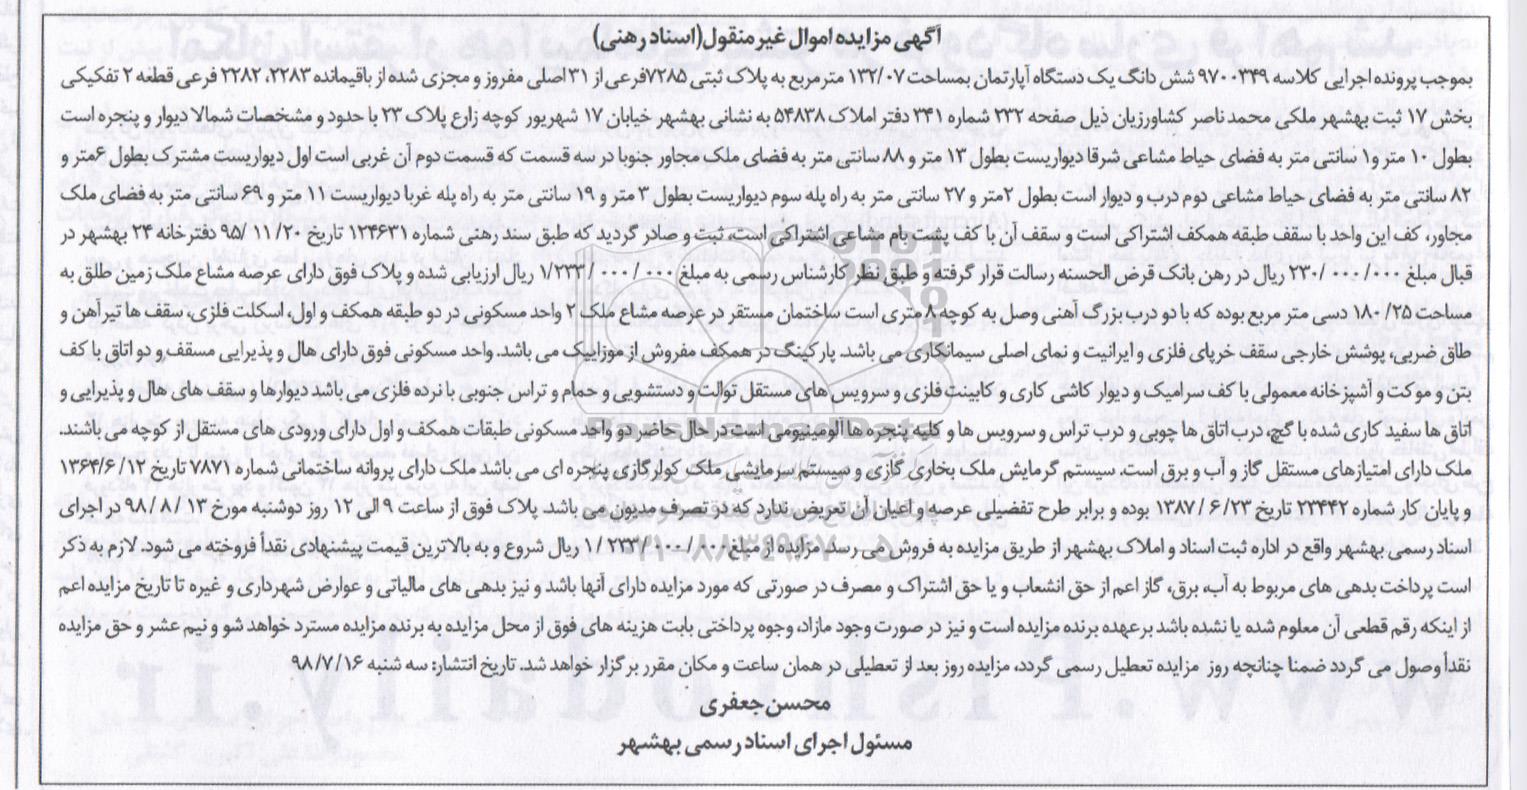 آگهی مزایده اموال غیر منقول(اسناد رهنی)
بموجب پرونده اجرایی کلاسه ۹۷۰۰۳۴۹ شش دانگ یک دستگاه آپارتمان بمساحت ۱۳۲/۰۷ مترمربع به پلاک ثبتی ۷۲۸۵فرعی از ۳۱ اصلی مفروز و مجزی شده از باقیمانده ۲۲۸۳، ۲۲۸۲ فرعی قطعه ۲ تفکیکی
بخش ۱۷ ثبت بهشهر ملکی محمد ناصر کشاورزیان ذیل صفحه ۲۳۲ شماره ۳۴۱ دفتر املاک ۵۴۸۳۸ به نشانی بهشهر خیابان ۱۷ شهریور کوچه زارع پلاک ۲۳ با حدود و مشخصات شمالا دیوار و پنجره است
بطول ۱۰ متر و۱ سانتی متر به فضای حیاط مشاعی شرقا دیواریست بطول ۱۳ متر و ۸۸ سانتی متر به فضای ملک مجاور جنوبا در سه قسمت که قسمت دوم آن غربی است اول دیواریست مشترک بطول ۶متر و
۸۲ سانتی متر به فضای حیاط مشاعی دوم درب و دیوار است بطول ۲متر و ۲۷ سانتی متر به راه پله سوم دیواریست بطول ۳ متر و ۱۹ سانتی متر به راه پله غربا دیواریست ۱۱ متر و ۶۹ سانتی متر به فضای ملک
مجاور، کف این واحد با سقف طبقه همکف اشتراکی است و سقف آن با کف پشت بام مشاعی اشتراکی است، ثبت و صادر گردید که طبق سند رهنی شماره ۱۲۴۶۳۱ تاریخ ۲۰/ ۱۱ /۹۵ دفترخانه ۲۴ بهشهر در
قبال مبلغ ۰۰۰/ ۰۰۰ /۲۳۰ ریال در رهن بانک قرض الحسنه رسالت قرار گرفته و طبق نظر کارشناس رسمی به مبلغ ۰۰۰/ ۰۰۰ /۱/۲۳۳ ریال ارزیابی شده و پلاک فوق دارای عرصه مشاع ملک زمین طلق به
مساحت ۱۸۰/۲۵ دسی متر مربع بوده که با دو درب بزرگ آهنی وصل به کوچه ۸ متری است ساختمان مستقر در عرصه مشاع ملک ۲ واحد مسکونی در دو طبقه همکف و اول، اسکلت فلزی، سقف ها تیرآهن و
طاق ضربی، پوشش خارجی سقف خرپای فلزی و ایرانیت و نمای اصلی سیمانکاری می باشد. پارکینگ در همکف مفروش از موزاییک می باشد. واحد مسکونی فوق دارای هال و پذیرایی مسقف و دو اتاق با کف
بتن و موکت و آشپزخانه معمولی با کف سرامیک و دیوار کاشی کاری و کابینت فلزی و سرویس های مستقل توالت و دستشویی و حمام و تراس جنوبی با نرده فلزی می باشد دیوارها و سقف های هال و پذیرایی و
اتاق ها سفید کاری شده با گچ، درب اتاق ها چوبی و درب تراس و سرویس ها و کلیه پنجره ها آلومینیومی است در حال حاضر دو واحد مسکونی طبقات همکف و اول دارای ورودی های مستقل از کوچه می باشند.
ملک دارای امتیازهای مستقل گاز و آب و برق است. سیستم گرمایش ملک بخاری گازی و سیستم سرمایشی ملک کولرگازی پنجره ای می باشد ملک دارای پروانه ساختمانی شماره ۷۸۷۱ تاریخ ۱۳۶۴/۶/۱۲
و پایان کار شماره ۲۳۴۴۲ تاریخ ۲۳/ ۶ /۱۳۸۷ بوده و برابر طرح تفضیلی عرصه و اعیان آن تعریض ندارد که در تصرف مدیون می باشد. پلاک فوق از ساعت ۹ الی ۱۲ روز دوشنبه مورخ ۱۳ / ۸ / ۹۸ در اجرای
اسناد رسمی بهشهر واقع در اداره ثبت اسناد و املاک بهشهر از طریق مزایده به فروش می رسد مزایده از مبلغ ۱/۲۳۳/ ریال شروع و به بالاترین قیمت پیشنهادی نقداً فروخته می شود. لازم به ذکر
است پرداخت بدهی های مربوط به آب، برق، گاز اعم از حق انشعاب و یا حق اشتراک و مصرف در صورتی که مورد مزایده دارای آنها باشد و نیز بدهی های مالیاتی و عوارض شهرداری و غیره تا تاریخ مزایده اعم
از اینکه رقم قطعی آن معلوم شده یا نشده باشد برعهده برنده مزایده است و نیز در صورت وجود مازاد، وجوه پرداختی بابت هزینه های فوق از محل مزایده به برنده مزایده مسترد خواهد شو و نیم عشر و حق مزایده
نقداً وصول می گردد ضمنا چنانچه روز مزایده تعطیل رسمی گردد، مزایده روز بعد از تعطیلی در همان ساعت و مکان مقرر برگزار خواهد شد. تاریخ انتشار: سه شنبه ۹۸/۷/۱۶
محسن جعفری
مسئول اجرای اسناد رسمی بهشهر
ParsNamadData
۰۲۱-۸۸۳۴۹۶۷۰-۵